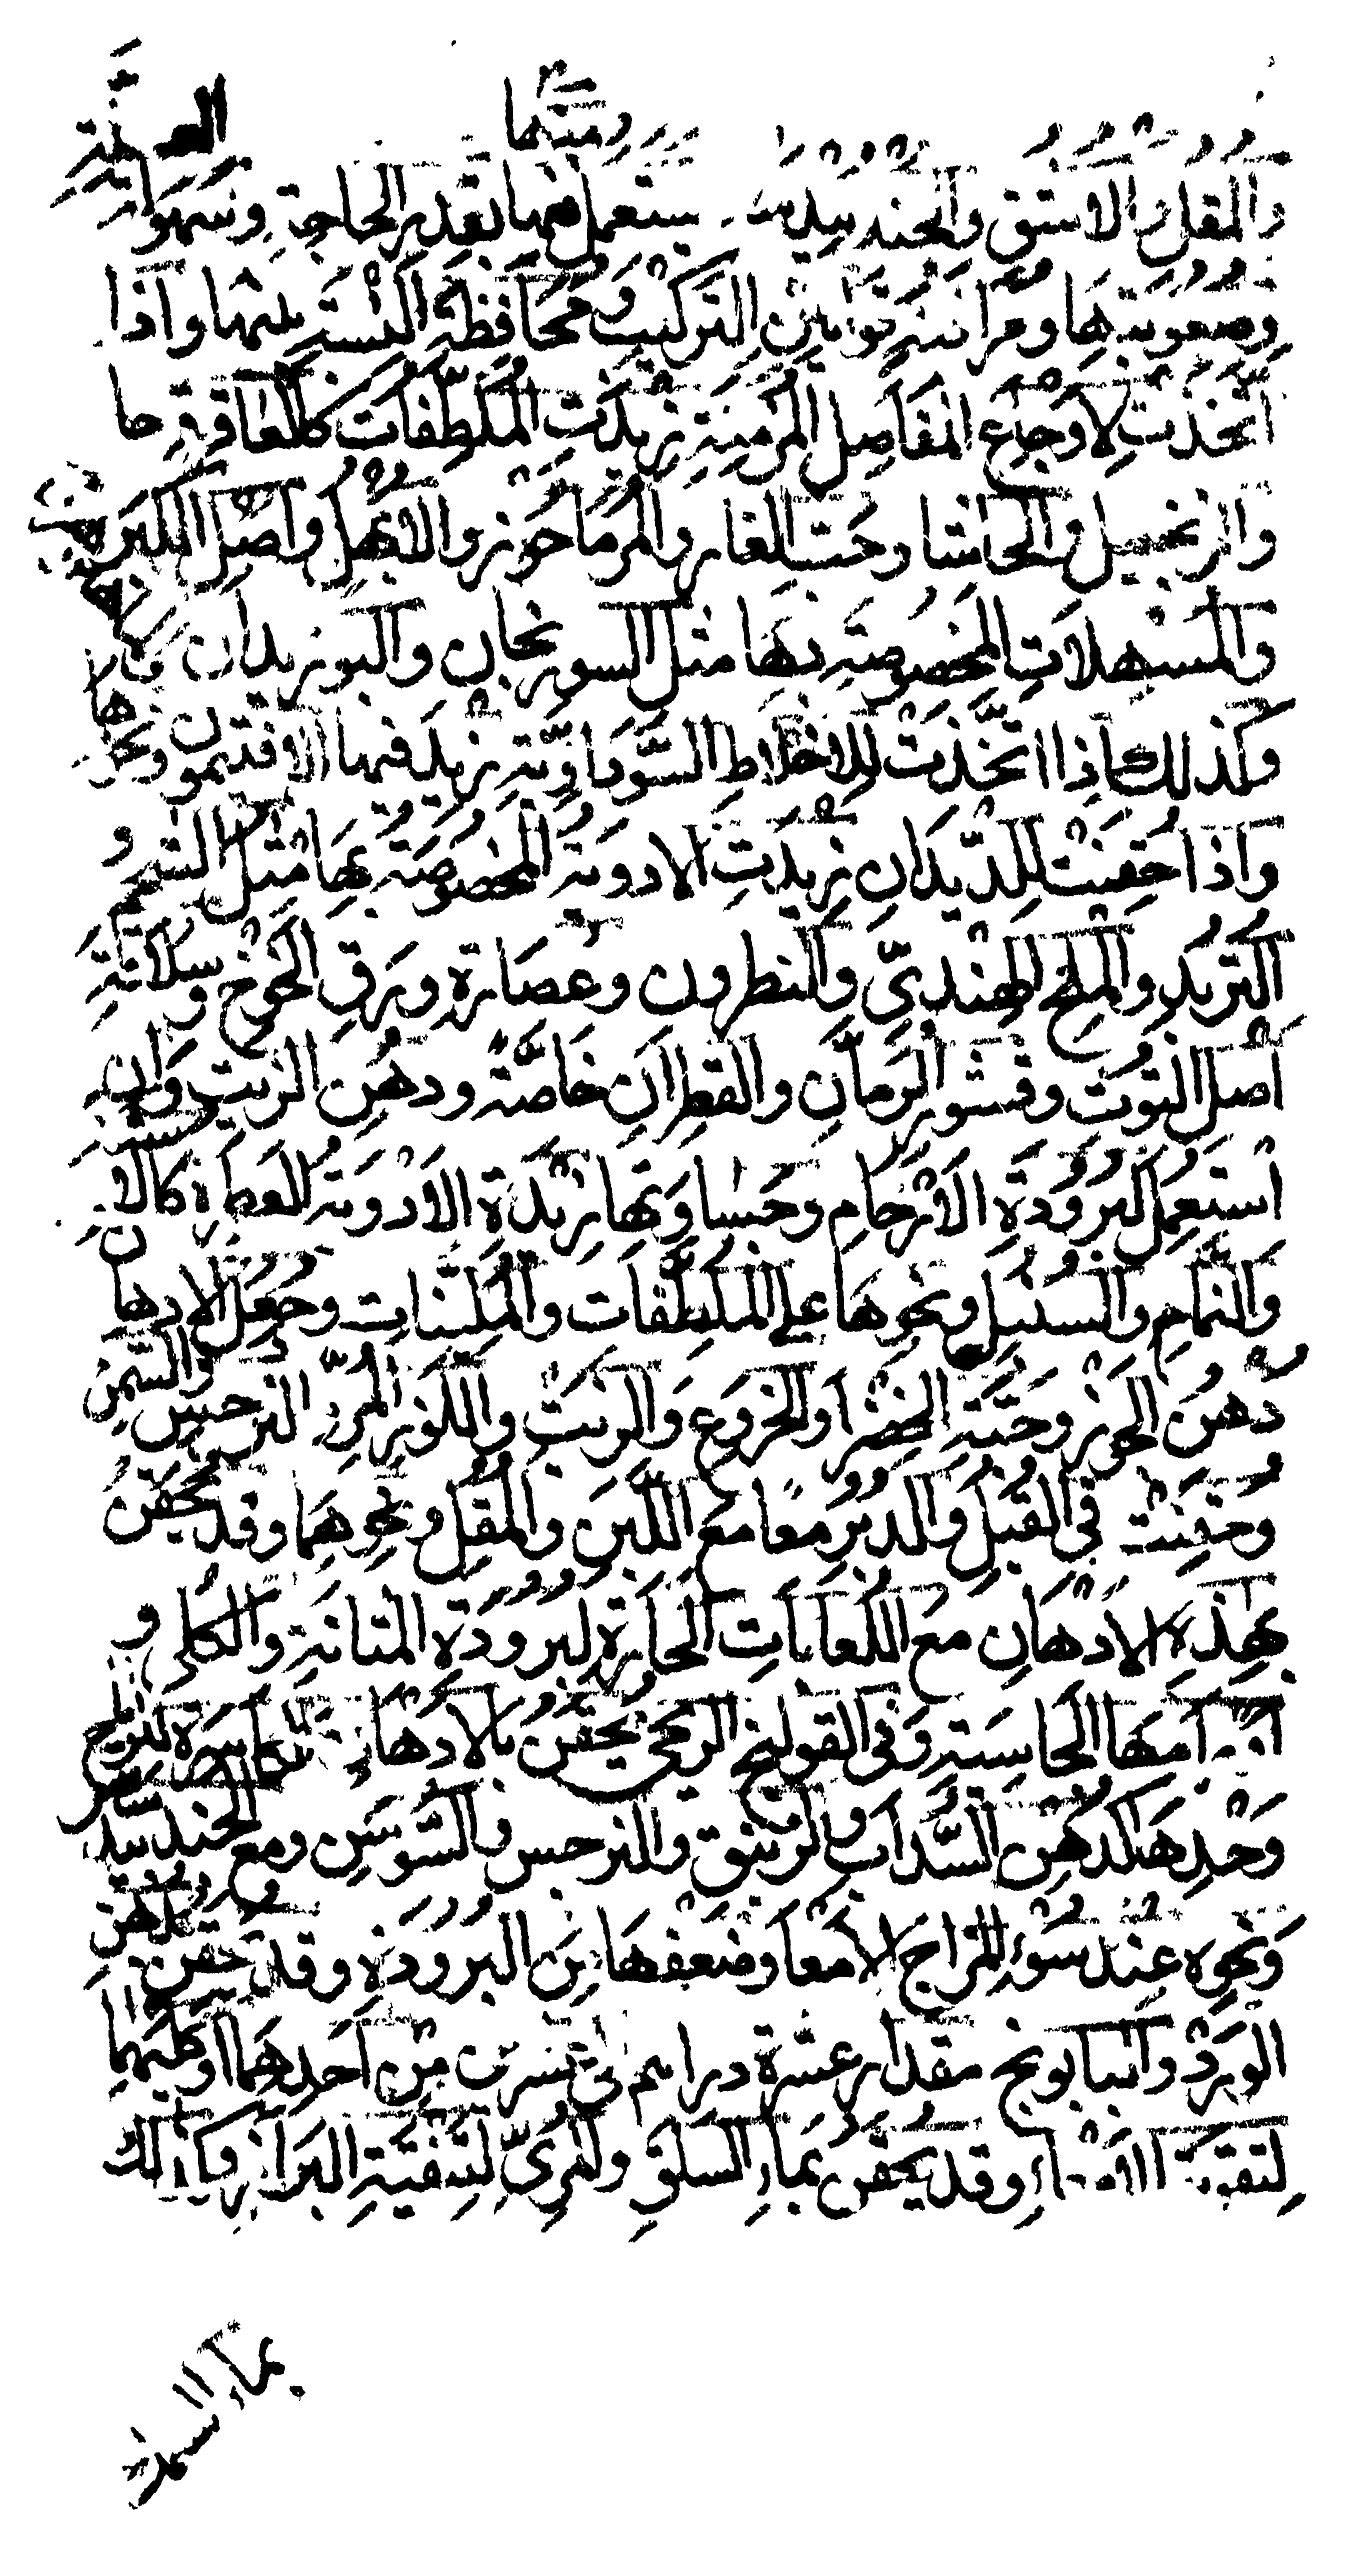 منها
والمقل والاشق والجندبيدستر يستعمل منها بقدر الحاجة وسهولة العلة
وصعوبتها ومراتبه قوانين التركيب ومحافظة النسبة بينها واذا
اتخذت لاوجاع المفاصل المزمنة زيدت الملطفات كالعاقرقرحا
والزنجبيل والحاشا وحب الغار والمرماحوز والابهل واصل الكبر
والمسهلات المخصوصة بها مثل السورنجان والبوزيدان
وكذلك اذا اتخذت للاخلاط السوداوية زيد فيها الافتيمون ونحوها
واذا حقنت للديدان زيدت الادوية المخصوصة بها مثل الشحم و
التربد والملح الهندي والنطرون وعصارة ورق الخوخ وسلاقة
اصل التوت وقشور الرمان والقطران خاصة ودهن الزيت وان
استعمل لبرودة الارحام وحبسا وتها زيدة الادوية العطرة كالاذخر
والنمام والسنبل ونحوها على الملطفات والملينات وجعل الادهان
دهن الجوز وحبة الخضرا والخروع والزيت واللوز المر النرجس والسمن
وحقنت في القبل والدبر معا مع اللبن والمقل ونحوهما وقد يحقن
بهذه الادهان مع اللعابات الحارة لبرودة المثانة والكلى و
الحاسية وفي القولنج الريحي يحقن بالادهان الكاسرة للرياح
وحدها كدهن السداب والزنبق والنرجس والسوسن ومع الجندبيدستر
ونحوه عند سوء المزاج الامعا وضعفها من البرودة وقد يحقن بدهن
الورد والبابونج مقدار عشرة دراهم من احدهما او كليهما
وقد يحقن بماء السلق والمري لتنقية البراز وكذلك
بماء السمك